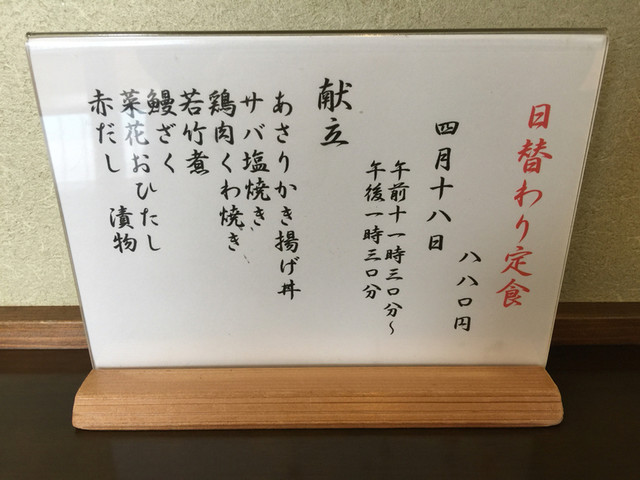 日替わり定食
八八〇円
四月十八日
午前十一時三〇分〜
午後一時三〇分
献立
あさりかき揚げ丼
サバ塩焼き
鶏肉くわ焼き
若竹煮
鰻ざく
菜花おひたし
赤だし　漬物